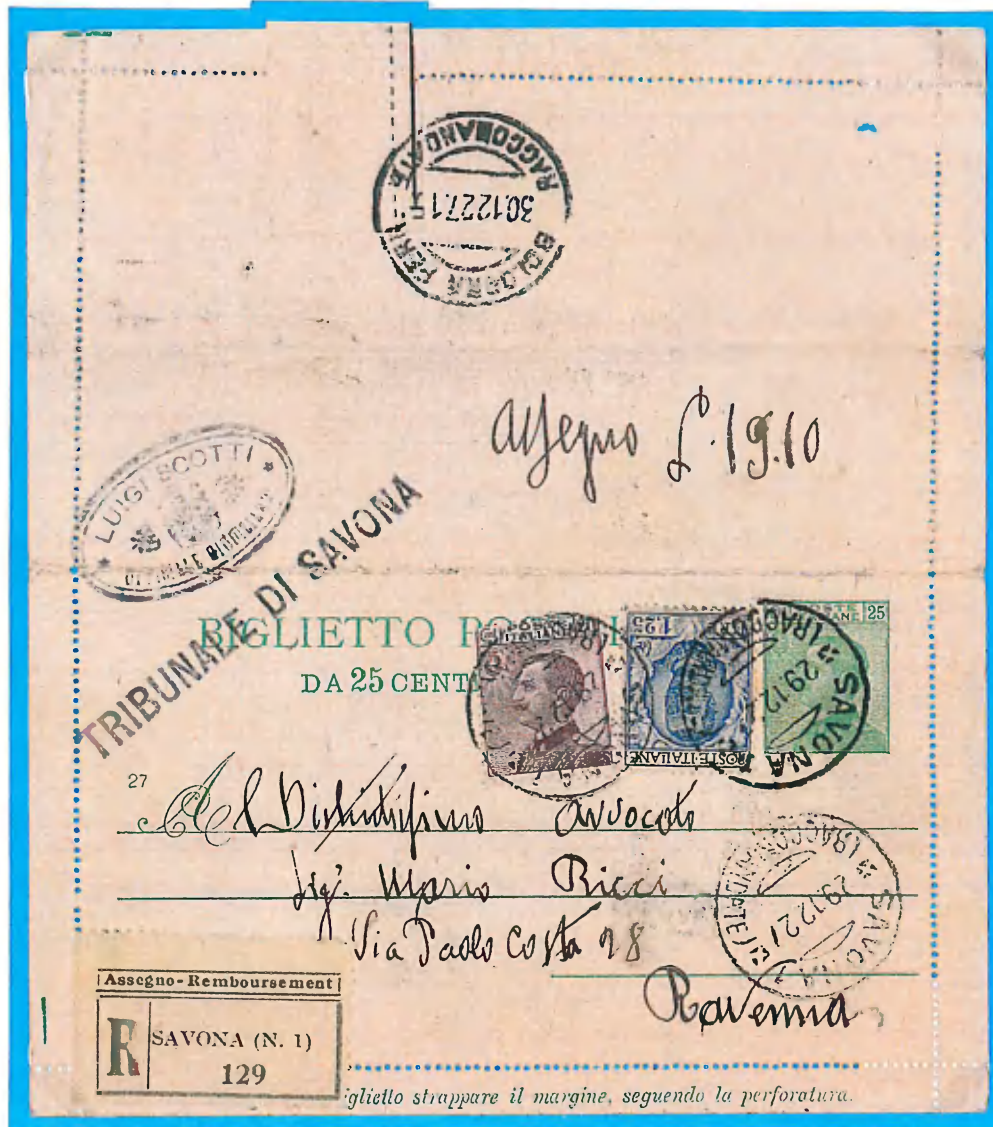 BOLOGNA FERR
30.12.27.1
RACCOMANDATE
Assegno £.19.10
LUIGI SCOTTI
TRIBUNALE DI SAVONA
BIGLIETTO
DA 25 CENT
1.25
POSTE·ITALIANE
25
SAVONA
29.12.
(RACCOMANDATE)
27
Al Distintissimo avvocato
Sig. Mario Ricci
Via Paolo Costa 28
Ravenna
SAVONA 1
29.12.27
(RACCOMANDATE)
Assegno-Remboursement
R
SAVONA (N. 1)
129
glietto strappare il margine, seguendo la perforatura.